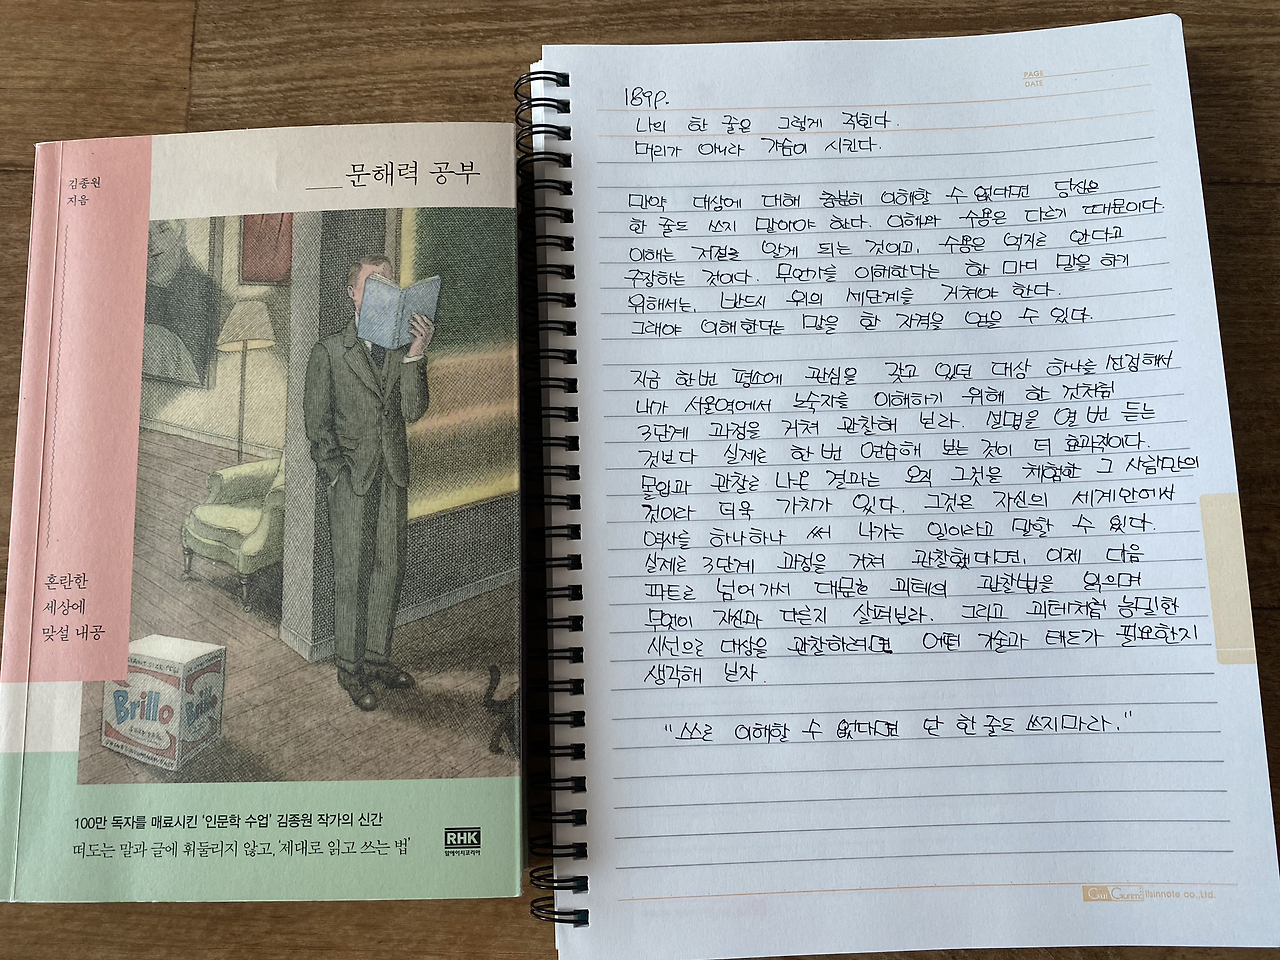 김종원
지음
문해력 공부
혼란한
세상에
맞설 내공
Brillo
Brillo
100만 독자를 매료시킨 '인문학 수업' 김종원 작가의 신간
떠도는 말과 글에 휘둘리지 않고, '제대로 읽고 쓰는 법'
RHK
알에이치코리아
PAGE
DATE
189p.
나의 한 줄은 그렇게 적힌다.
머리가 아니라 가슴이 시킨다.
만약 대상에 대해 충분히 이해할 수 없다면 당신은
한 줄도 쓰지 말아야 한다. 이해와 수용은 다르기 때문이다.
이해는 저절로 알게 되는 것이고, 수용은 억지로 안다고
주장하는 것이다. 무언가를 이해한다는 한 마디 말을 하기
위해서는, 반드시 위의 세단계를 거쳐야 한다.
그래야 이해한다는 말을 할 자격을 얻을 수 있다.
지금 한번 평소에 관심을 갖고 있던 대상 하나를 선정해서
내가 서울역에서 노숙자를 이해하기 위해 한 것처럼
3단계 과정을 거쳐 관찰해 보라. 설명을 열 번 듣는
것보다 실제로 한번 연습해 보는 것이 더 효과적이다.
몰입과 관찰로 나온 결과는 오직 그것을 체험한 그 사람만의
것이라 더욱 가치가 있다. 그것은 자신의 세계안에서
역사를 하나하나 써 나가는 일이라고 말할 수 있다.
실제로 3단계 과정을 거쳐 관찰했다면, 이제 다음
파트로 넘어가서 대문호 괴테의 관찰법을 읽으며
무엇이 자신과 다른지 살펴보라. 그리고 괴테처럼 농밀한
시선으로 대상을 관찰하려면 어떤 기술과 태도가 필요한지
생각해 보자.
"스스로 이해할 수 없다면 단 한 줄도 쓰지마라."
ilsinnote co.,Ltd.